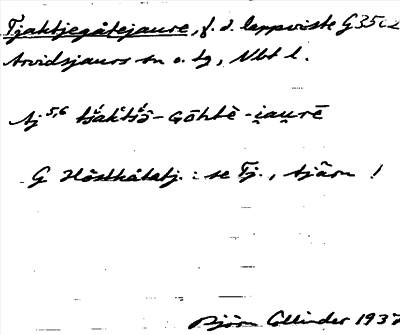 Tjaktjegåtejaure, f. d. lappviste G35 c2
Arvidsjaurs sn o. tg, Nbt l.
Aj 5,6 tšaktšə̑ - Gōhtē - i̯au̯rē
G Höstkåtatj. : se Tj., tjärn !
Björn Collinder 1937